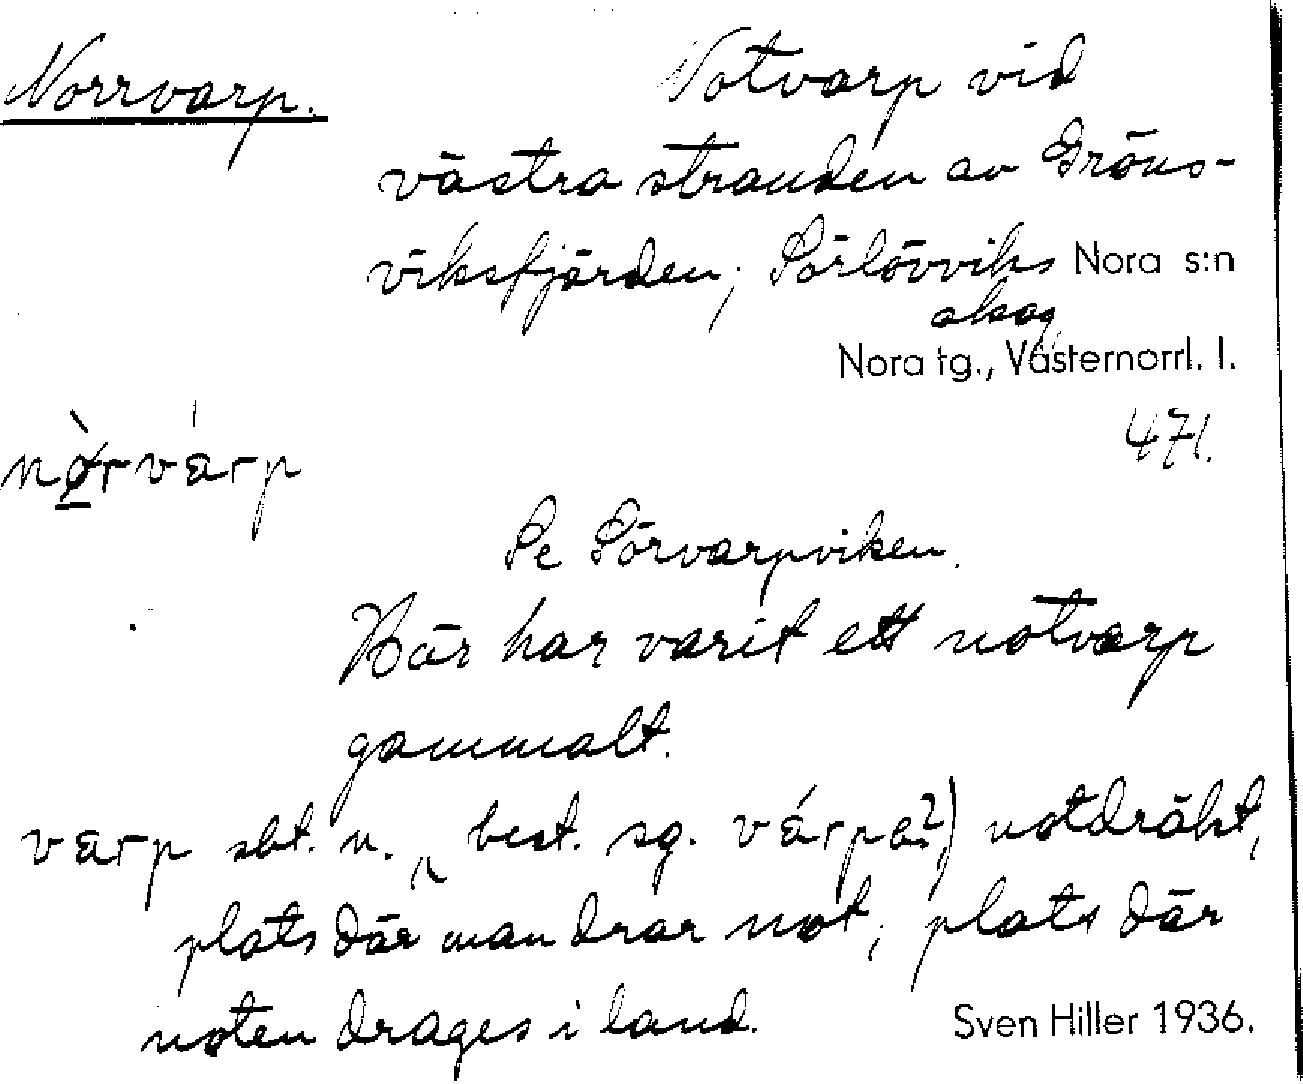 Norrvarp. Notvarp vid
västra stranden av Gröns-
viksfjärden; Sörlövviks Nora s:n
skog,
Nora tg., Västernorrl. l.
471.
nø̀rvárp
Se Sörvarpviken.
Här har varit ett notvarp
gammalt.
varp sbt. n. (best. sg. várpe?) notdräkt,
plats där man drar not; plats där
noten drages i land. Sven Hiller 1936.